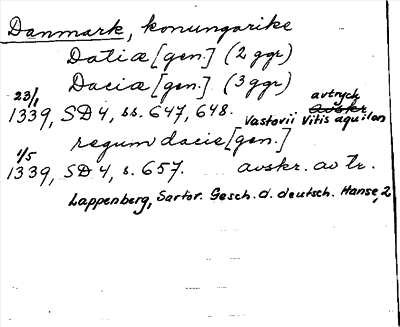 Danmark, konungarike
Datiæ [gen.] (2 ggr)
Daciæ [gen.] (3 ggr)
23/1 avtryck
1339, SD 4, ss. 647, 648. avskr.
Vastovii Vitis aquilon
regum dacie [gen.]
1/5
1339, SD 4, s. 657. avskr. av tr.
Lappenberg, Sartor. Gesch. d. deutsch. Hanse, 2